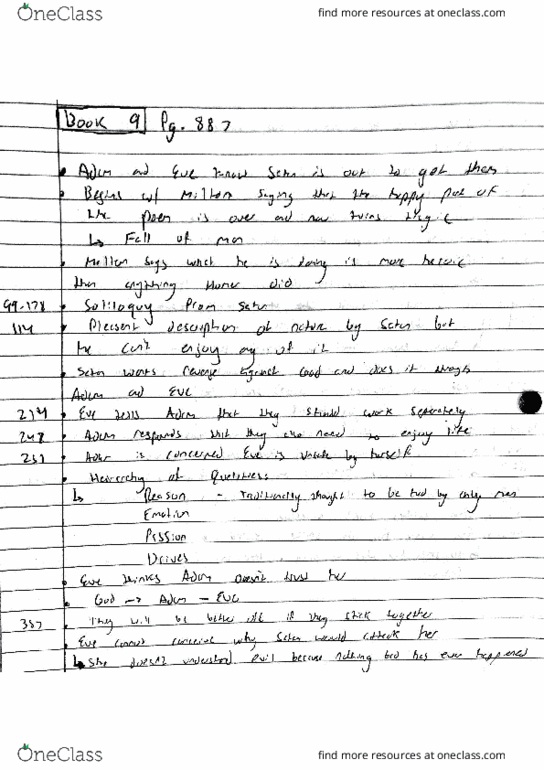 OneClass
find more resources at oneclass.com
Book 9 Pg. 887
• Adam and Eve know Satan is out to get them
• Begins w/ Milton saying that the happy part of
the poem is over and now turns tragic
↳ Fall of man
• Milton says what he is doing is more heroic
than anything Homer did
99-178 • Soliloquy from Satan
114 • Pleasent description of nature by Satan but
he can't enjoy any of it
• Satan wants revenge against God and does it through
Adam and Eve
214 • Eve tells Adam that they should work seperately
242 • Adam responds that they also need to enjoy life
251 • Adam is concerned Eve is unsafe by herself
• Heirarchy of Qualities
↳ Reason - Traditionally thought to be had by only men
Emotion
Passion
Drives
• Eve thinks Adam doesn't trust her
• God → Adam - Eve
357 • They will be better off if they stick together
• Eve cannot conceive why Satan would attack her
↳ She doesn't understand evil because nothing bad has ever happened
OneClass
find more resources at oneclass.com